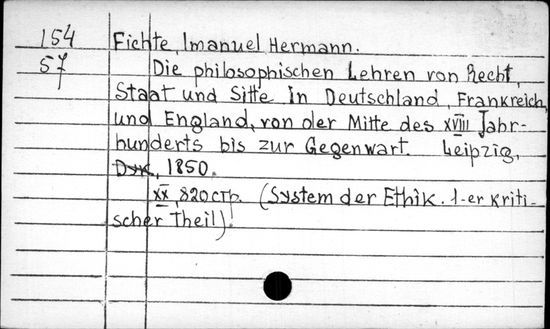 154 Fichte, Imanuel Hermann.
57 Die philosophischen Lehren von Recht,
Staat und Sitte in Deutschland, Frankreich,
und England, von der Mitte des XVIII Jahr-
hunderts bis zur Gegenwart. Leipzig,
Dyk, 1850.
XX, 820 стр. (System der Ethik. 1-er Kriti-
scher Theil).